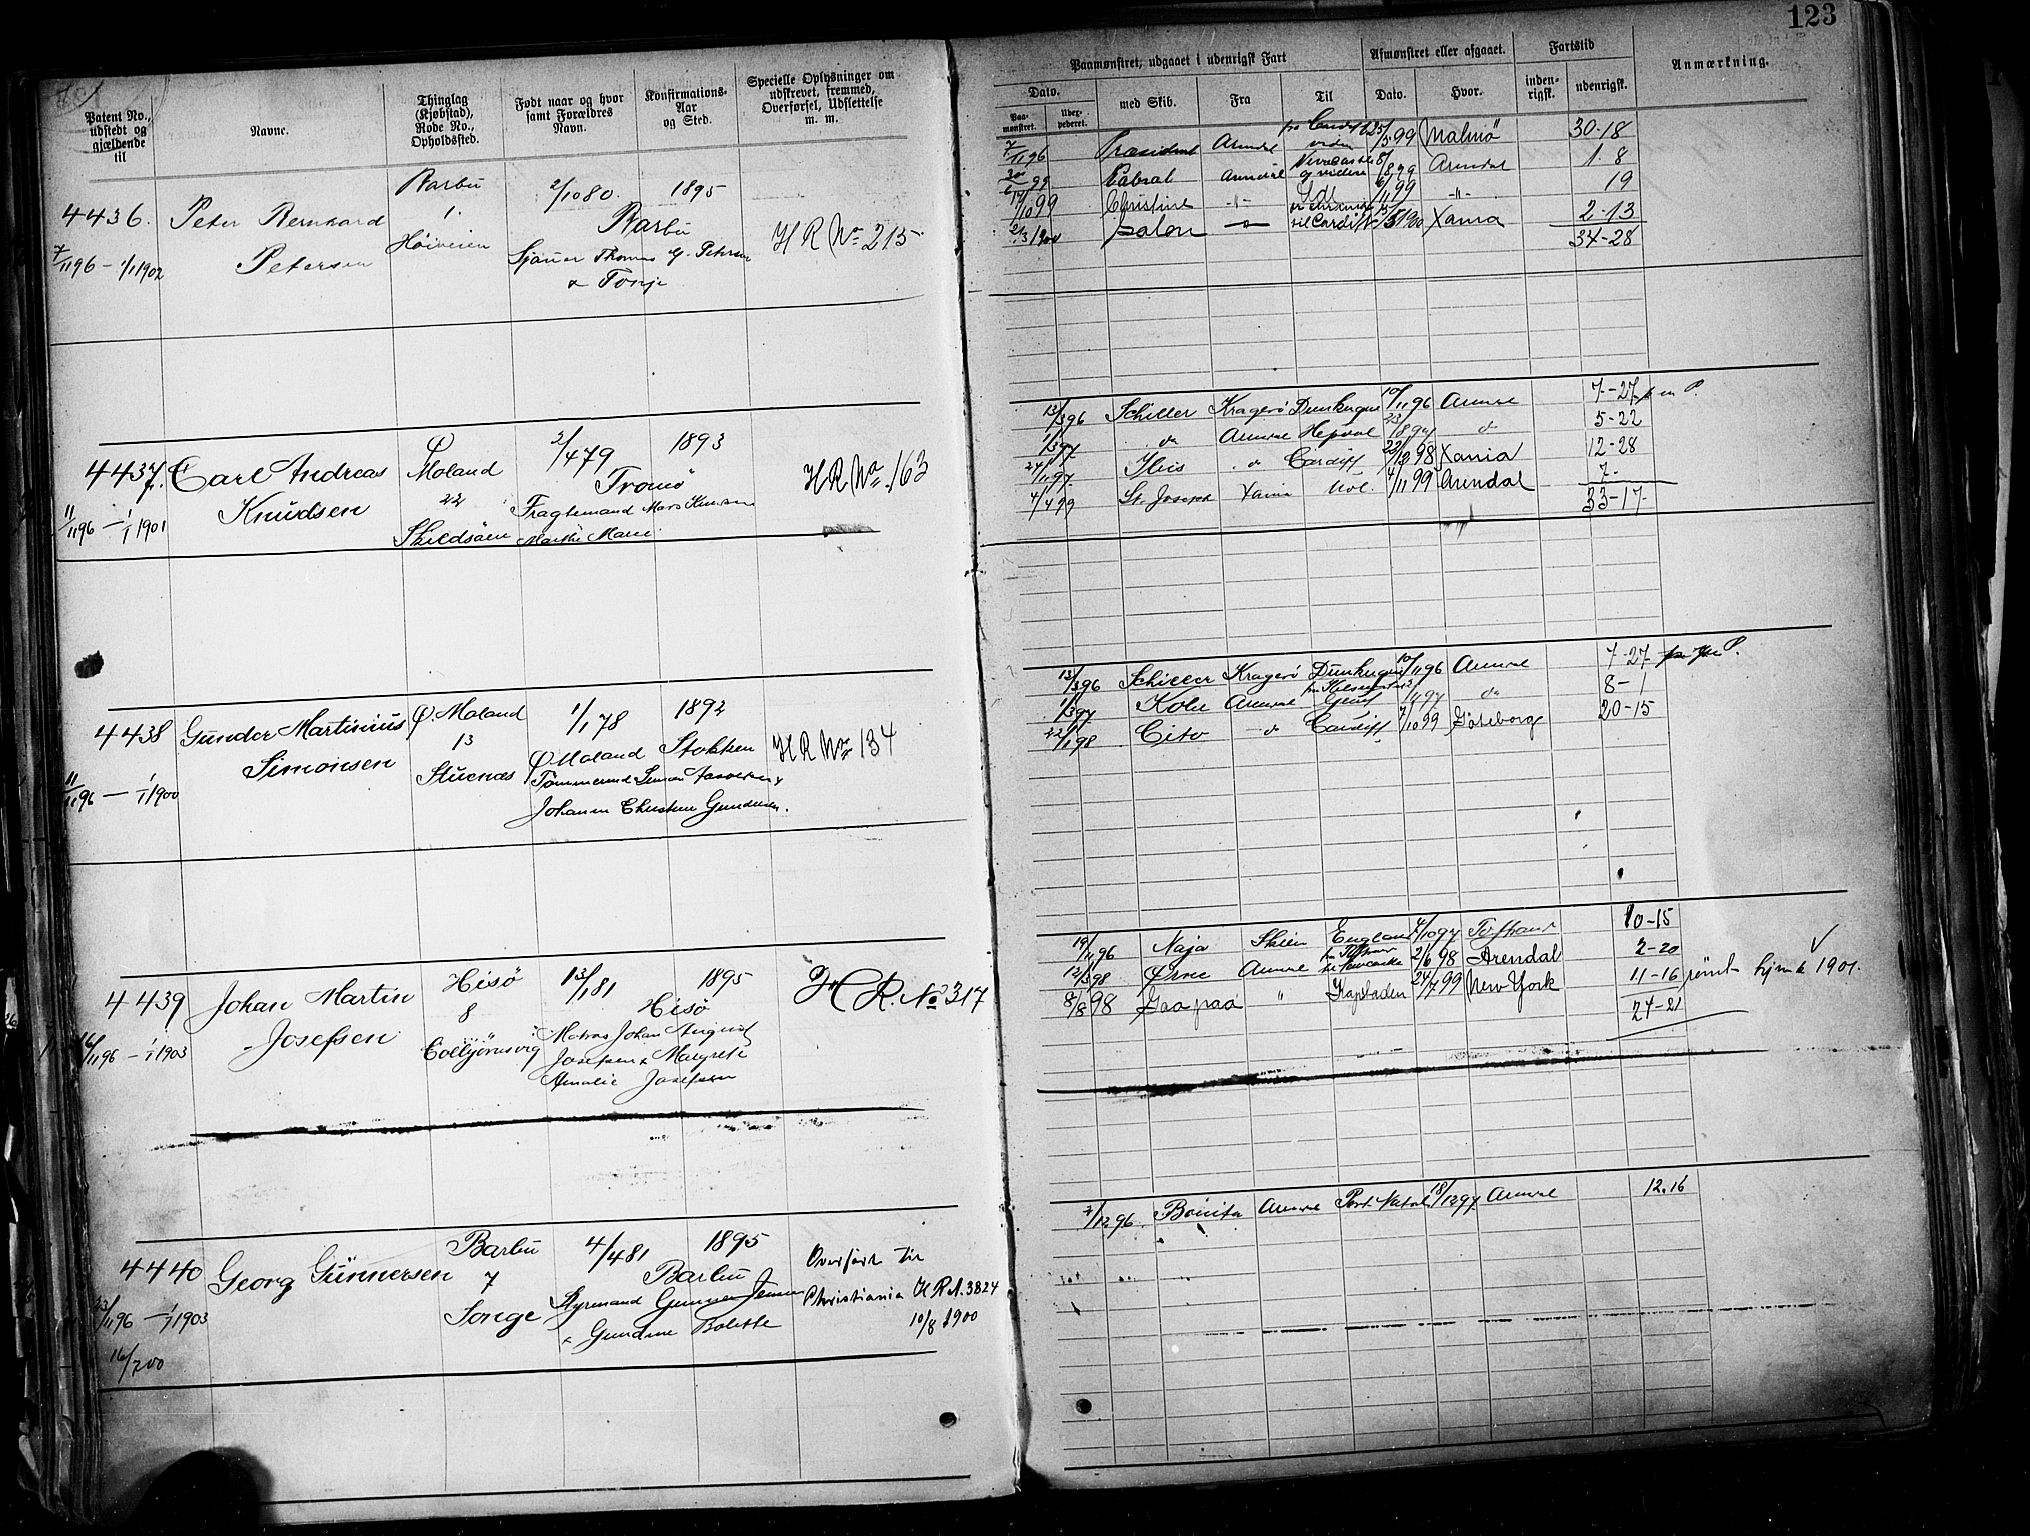 123
Patent No., udstedt og gjældende til
Navne.
Thinglag (Kjøbstad), Rode No., Opholdssted.
Født naar og hvor samt Forældres Navn.
Konfirmations- Aar og Sted.
Specielle Oplysninger om udskrevet, fremmed, Overførsel, Udslettelse m. m.
Paamønstret, udgaaet i udenrigsk Fart
Afmønstret eller afgaaet.
Fartstid
Anmærkning.
Dato.
Paa- mønstret.
med Skib.
Fra
Til
Dato.
Hvor.
inden- rigsk.
udenrigsk.
4436.
7/11 96 – 1/1 1902
Peter Bernhard
Petersen
Barbu
1.
Høiveien
2/10 80.
1895
Barbu
& Tonje
H R No 215.
7/11 96 Præsident Arendal 25/5 99 Malmö 30-18
30/6 99 Cabral Arendal Newcastle og videre 8/8 99 Arendal 1. 8
17/10 99 Christine -"- 6/11 99 -"- 19
2/3 1900 Salon til Cardiff 15/5 1900 Xania 2-13
34-28
4437.
11/11 96 – 1/1 1901
Carl Andreas
Knudsen
Ø Moland
22
Skildsøen
2/4 79
1893
Tromø
Fragtemand
H R No 163
13/3 96 Schiller Kragerø Dunkerque 10/11 96 7-27
1/3 97 do 23/8 97 do 5-22
24/11 97. do Cardiff 22/12 98 Xania 12-28
4/4 99 St. Joseph Xania 4/11 99 Arendal 7-
33-17-
4438
11/11 96 – 1/1 1900
Gunder Martinius
Simonsen
Ø. Moland
13
Stuenæs
1/1 78
1892
Ø Moland Stokken
Johanne Christine Gundersen.
H R No 134
13/3 96 Schiller Kragerø Dunkerque 10/11 96 7-27
1/3 97 do 8-1
22/1 98 Cito do Cardiff 7/10 99 Göteborg 20-15
4439
16/11 96 – 1/1 1903
Johan Martin
Josefsen
Hisø
8
Colbjørnsvig
13/1 81
1895
Hisø
Matros Johan August
Josefsen & Margrete
Amalie Josefsen
H R. No 317
19/11 96 Naja Skien England 4/10 97 10-15
12/3 98 Ørne 2/6 98 Arendal 2-20
8/8 98 Gaa paa " Kapstaden 24/7 99 New York 11-16 rømt hjemk 1901.
24-21
4440
23/11 96 – 1/1 1903
16/7 00
Georg Gunnersen
Barbu
7
Songe
4/4 81
1895
Barbu
Styrmand Gunner Jensen
& Gundine Bolette
Overført til
Christiania H R A. 3824
10/8 1900
2/12 96. Port Natal 18/12 97 12.16